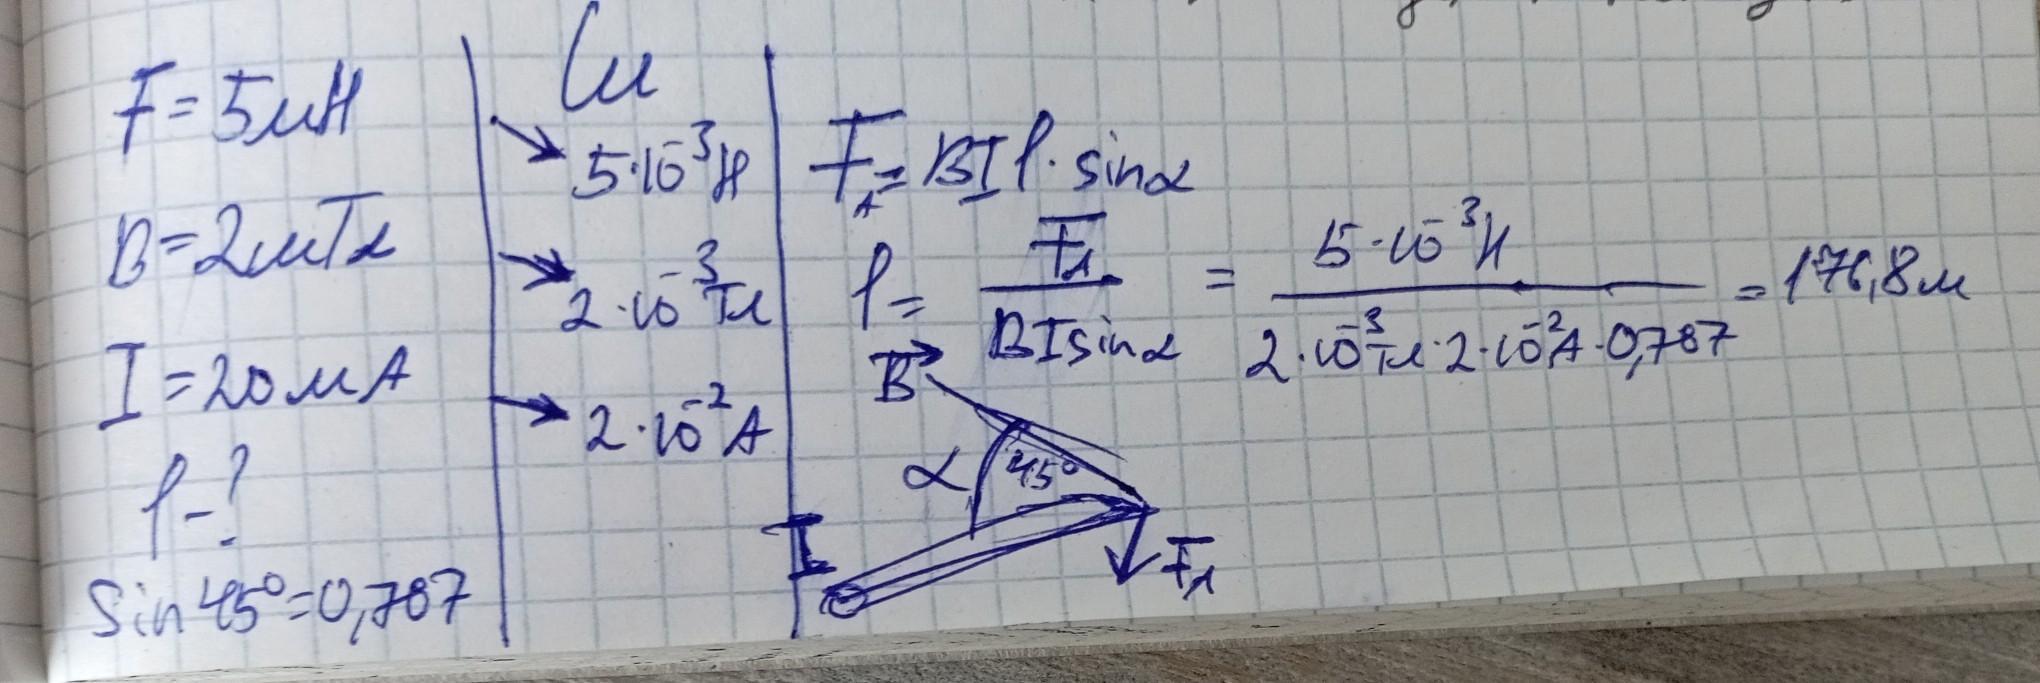 F = 5мН
B = 2мТл
I = 20мА
l - ?
Sin 45° = 0,707
Си
5·10⁻³Н
2·10⁻³Тл
2·10⁻²А
F_A = BIl · sinα
l = F_A / BIsinα = 5·10⁻³Н / 2·10⁻³Тл · 2·10⁻²А · 0,707 = 176,8м
B
α 45°
I
F_A